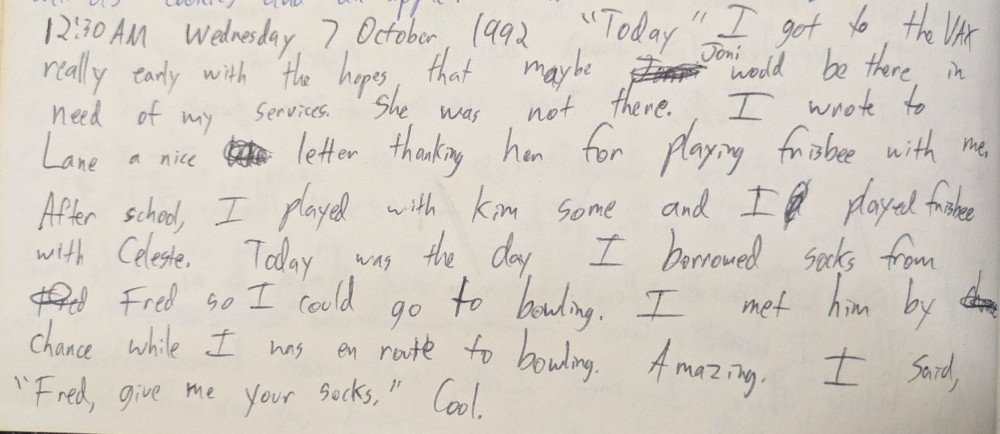 12:30 AM Wednesday 7 October 1992 "Today" I got to the VAX
really early with the hopes that maybe Joni would be there in
need of my services. She was not there. I wrote to
Lane a nice letter thanking her for playing frisbee with me.
After school, I played with Kim some and I played frisbee
with Celeste. Today was the day I borrowed socks from
Fred so I could go to bowling. I met him by
chance while I was en route to bowling. Amazing. I said,
"Fred, give me your socks." Cool.